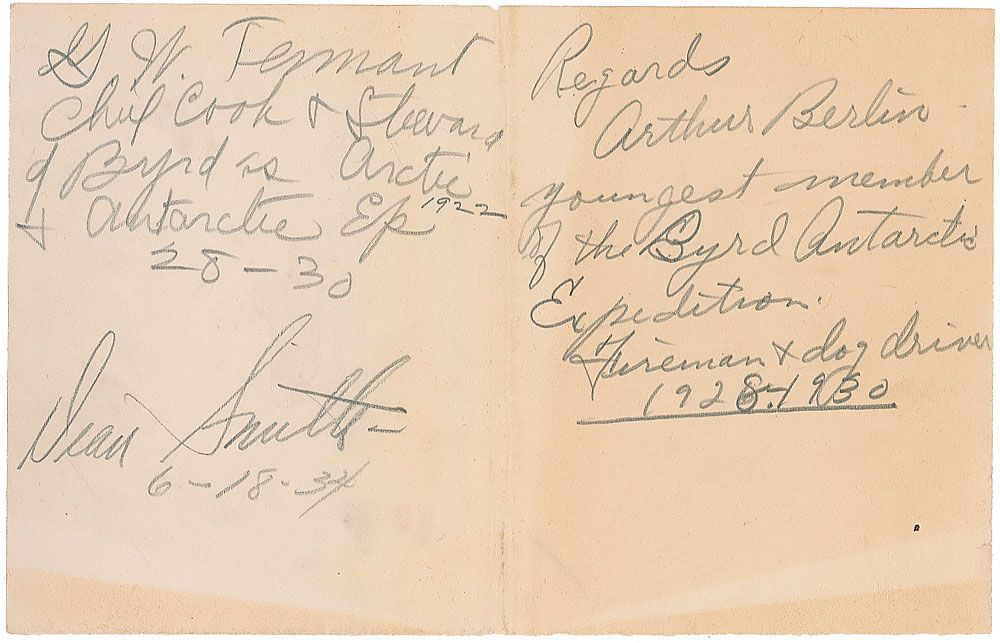 G W. Tennant
Chief Cook & Steward
of Byrd's Arctic
& Antarctic Ep 1922
28-30
Dean Smith
6-18-34
Regards
Arthur Berlin
youngest member
of the Byrd Antarctic
Expedition.
Fireman & dog driver
1928-1930